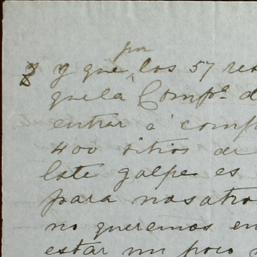 por
y que los 57 res
que la Compª d
entrar á comp
400 sitios de
Este golpe es
para nosotro
no queremos en
estar un poco